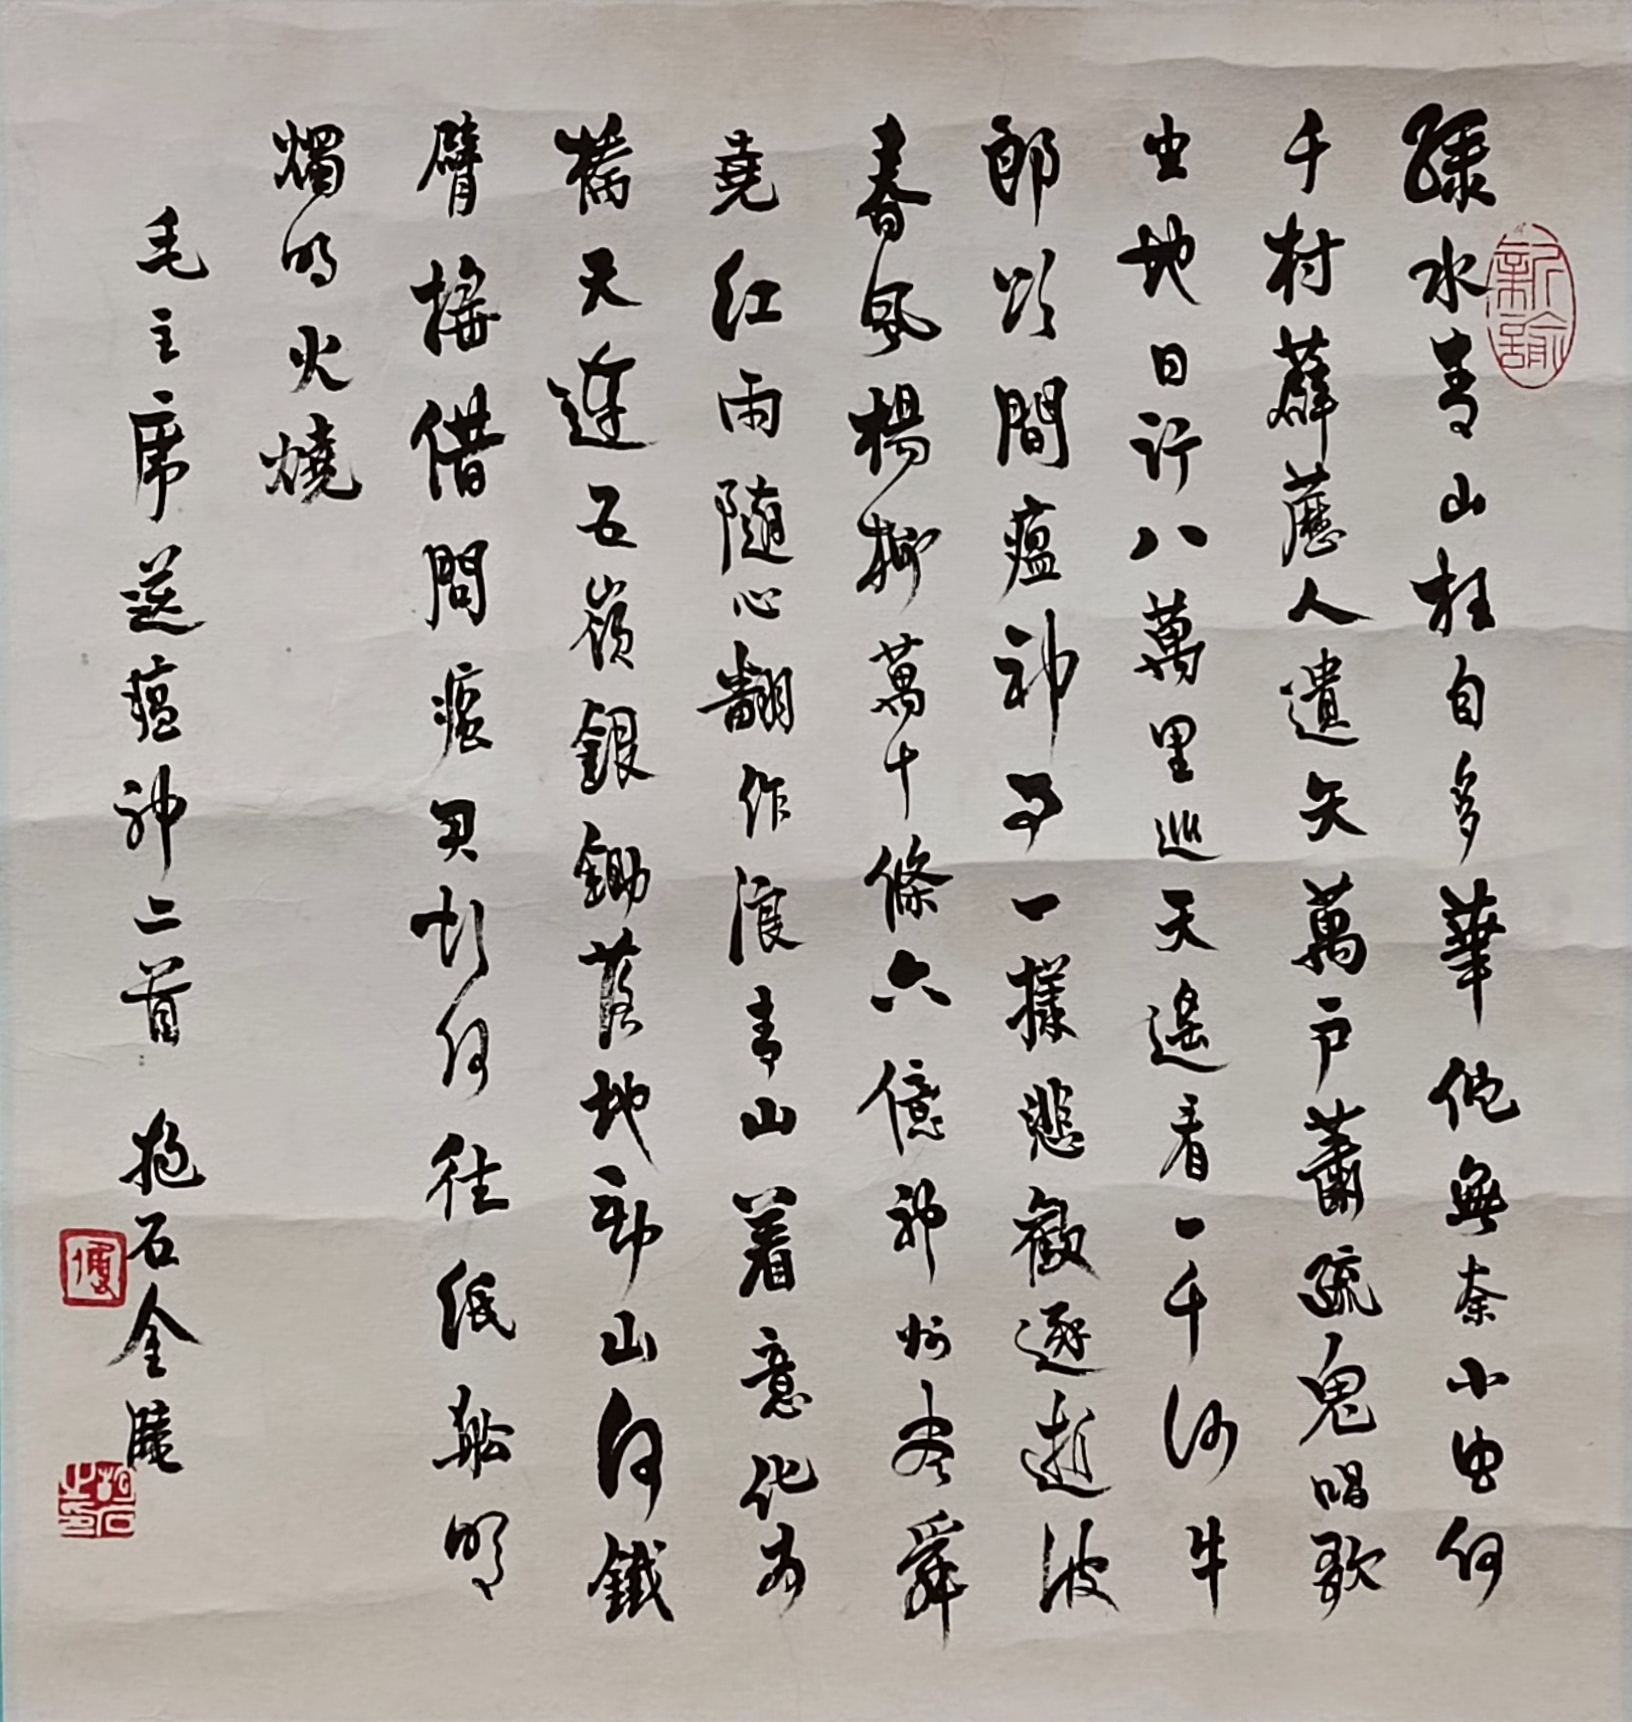 綠水青山枉自多華佗無奈小虫何
千村薜藶人遺矢萬戶蕭疏鬼唱歌
坐地日行八萬里巡天遙看一千河牛
郎欲間瘟神事一樣悲歡逐逝波
春風楊柳萬千條六億神州盡舜
堯紅雨隨心翻作浪青山着意化為
橋天連五嶺銀鋤落地動山河鐵
臂搖借問瘟君欲何往紙船明
燭明火燒
毛主席送瘟神二首 抱石金陵
傅
抱石之印